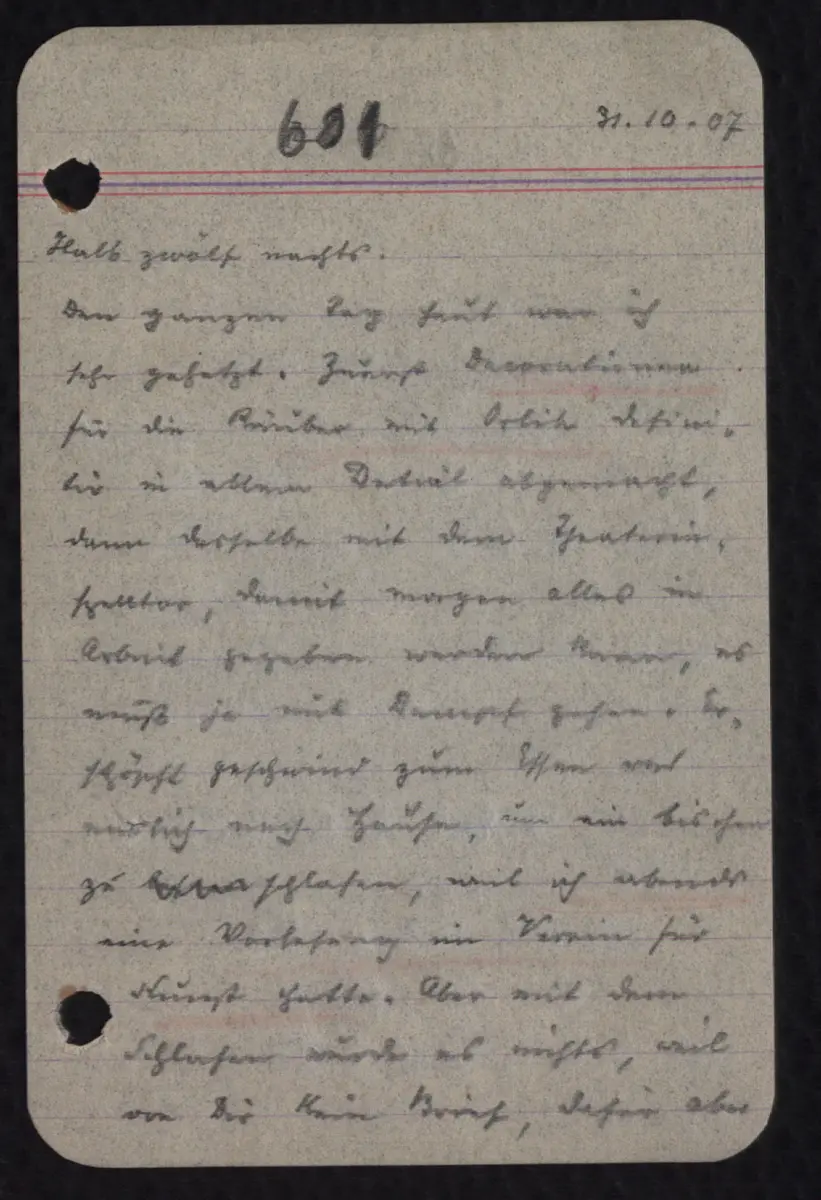 601
31.10.07
Halb zwölf nachts.
Den ganzen Tag heut war ich
sehr gehetzt. Zuerst Decorationen
für die Räuber mit Orlik defini-
tiv in allem Detail abgemacht,
dann dasselbe mit dem Theaterin-
spektor, damit morgen alles in
Arbeit gegeben werden kann, es
muß ja mit Dampf gehen. Er-
schöpft geschwind zum Essen und
endlich nach Hause, um ein bischen
zu schlafen, weil ich abends
eine Vorlesung im Verein für
Kunst hatte. Aber mit dem
Schlafen wurde es nichts, weil
von Dir kein Brief, dafür aber